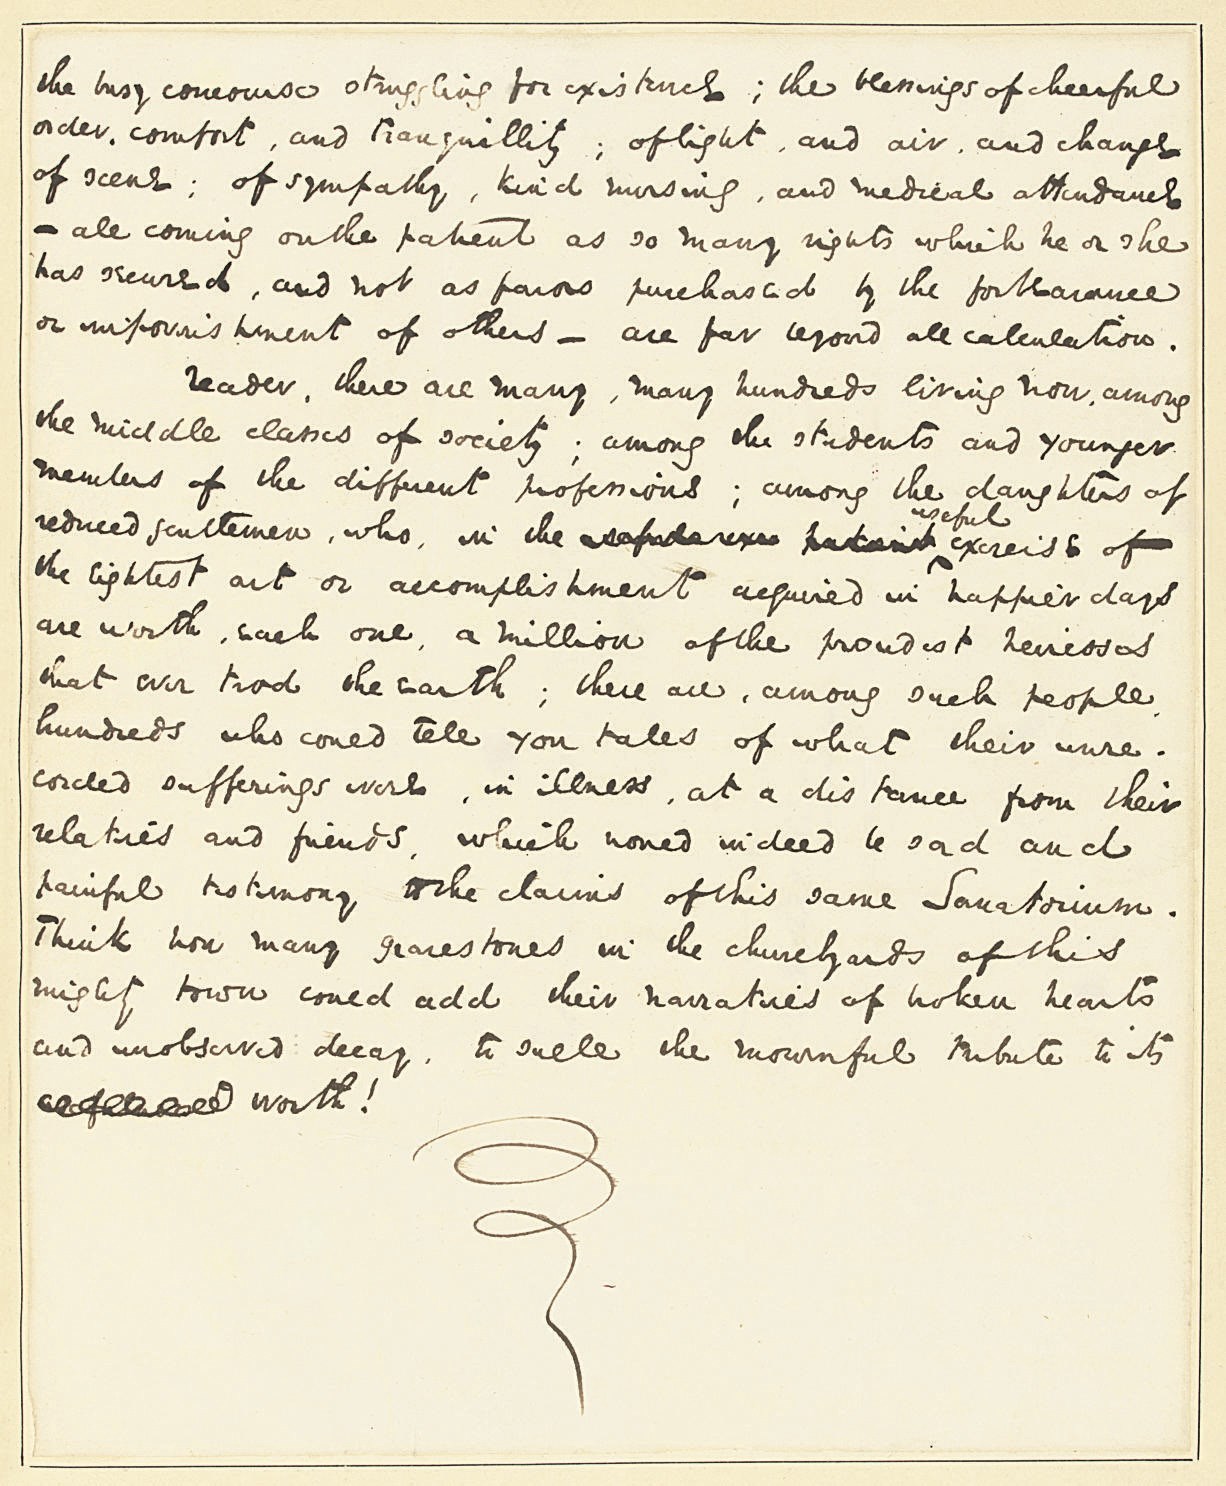 the busy concourse struggling for existence ; the blessings of cheerful
order, comfort, and tranquillity ; of light, and air, and change
of scene ; of sympathy, kind nursing, and medical attendance
– all coming on the patient as so many rights which he or she
has secured, and not as favors purchased by the forbearance
or impoverishment of others – are far beyond all calculation.
Reader, there are many, many hundreds living now, among
the middle classes of society ; among the students and younger
members of the different professions ; among the daughters of
reduced gentlemen, who, in the useful exercise of
the lightest art or accomplishment acquired in happier days
are worth, each one, a million of the proudest heiresses
that ever trod the earth ; there are, among such people,
hundreds who could tell you tales of what their unre-
corded sufferings were, in illness, at a distance from their
relatives and friends, which would indeed be sad and
painful testimony to the claims of this same Sanatorium.
Think how many gravestones in the churchyards of this
mighty town could add their narratives of broken hearts
and unobserved decay, to swell the mournful tribute to its
worth!